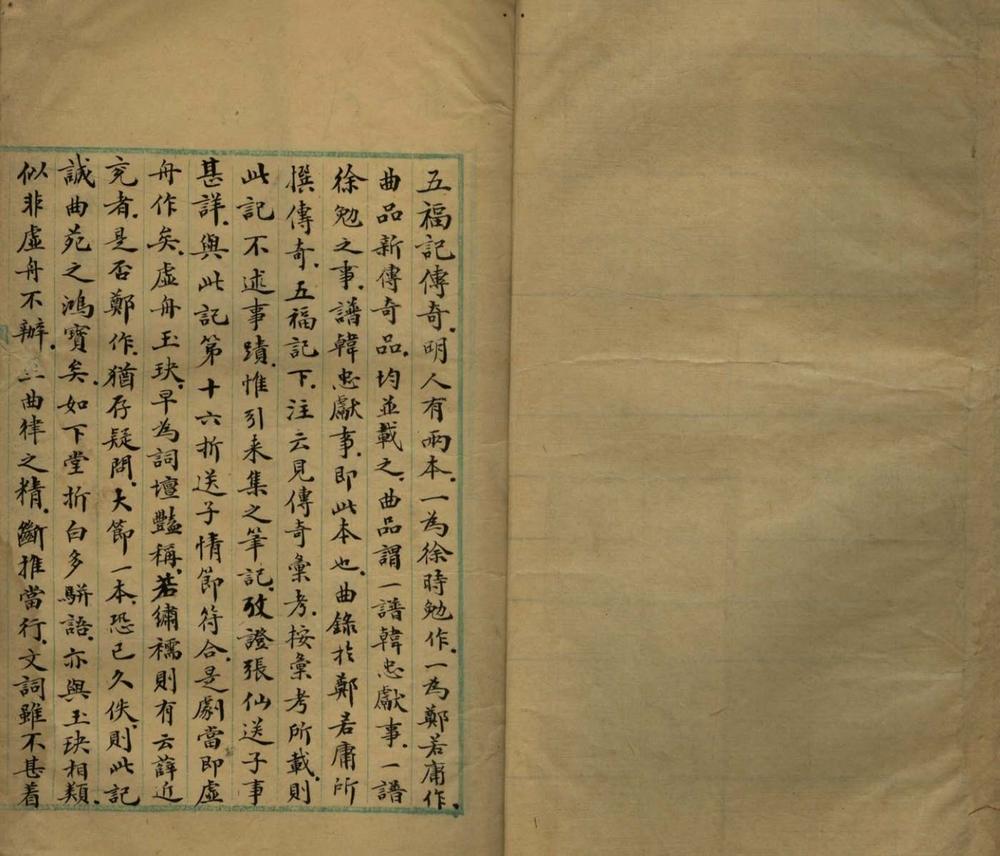 五福記傳奇.明人有兩本.一為徐時勉作.一為鄭若庸作.
曲品新傳奇品.均並載之.曲品謂一譜韓忠獻事.一譜
徐勉之事.譜韓忠獻事.即此本也.曲錄於鄭若庸所
撰傳奇.五福記下.注云見傳奇彙考.按彙考所載.則
此記不述事蹟.惟引来集之筆記.攷證張仙送子事
甚詳.與此記第十六折送子情節符合.是劇當即虛
舟作矣.虛舟玉玦.早為詞壇豔稱.若繡襦則有云薛近
兖者.是否鄭作.猶存疑問.大節一本.恐已久佚.則此記
誠曲苑之鴻寶矣.如下堂折白多駢語.亦與玉玦相類.
似非虛舟不辦.曲律之精.斷推當行.文詞雖不甚着